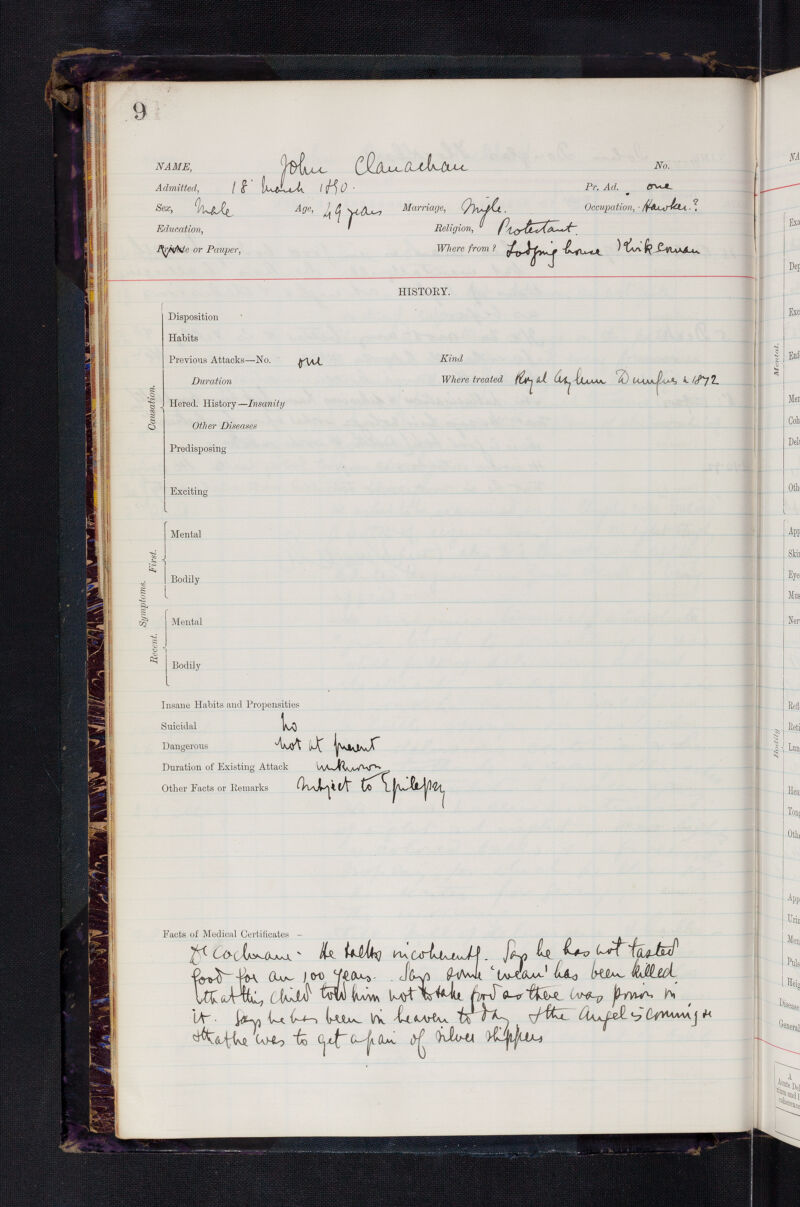 9
NAME, John Clanachan No.
Admitted, 18 March 1890. Pr. Ad. one
Sex, Male Age, 49 years Marriage, Single. Occupation, - Hawker.?
Education, Religion, Protestant.
Private or Pauper, Where from? Lodging house Kirkcowan
HISTORY.
Disposition
Habits
Previous Attacks—No. one Kind
Duration Where treated Royal Asylum Dumfries 1872
Hered. History—Insanity
Other Diseases
Predisposing
Exciting
Causation.
Mental
Bodily
First.
Symptoms.
Mental
Bodily
Recent.
Insane Habits and Propensities
Suicidal no
Dangerous not at present
Duration of Existing Attack unknown
Other Facts or Remarks Subject to Epilepsy
Facts of Medical Certificates -
Dr Cochrane - He talks incoherently. Says he has not tasted
food for an 100 years. Says some 'wean' has been killed
& that this child told him not to take food as there was poison in
it. Says he has been in heaven to day & the Angel is coming &
that he was to get a pair of silver slippers
Mental.
Bodily